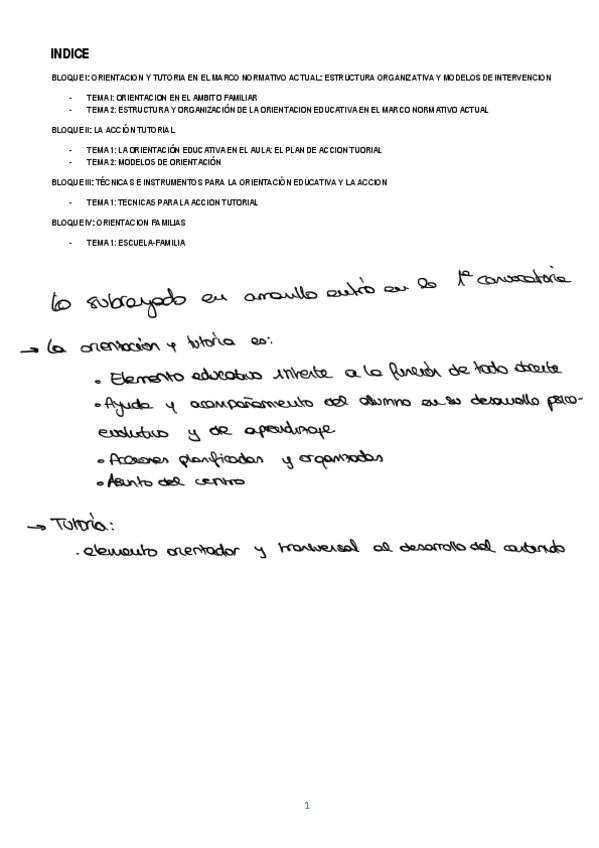 INDICE
BLOQUE I: ORIENTACION Y TUTORIA EN EL MARCO NORMATIVO ACTUAL: ESTRUCTURA ORGANIZATIVA Y MODELOS DE INTERVENCION
- TEMA I: ORIENTACION EN EL AMBITO FAMILIAR
- TEMA 2: ESTRUCTURA Y ORGANIZACIÓN DE LA ORIENTACION EDUCATIVA EN EL MARCO NORMATIVO ACTUAL
BLOQUE II: LA ACCIÓN TUTORIAL
- TEMA 1: LA ORIENTACIÓN EDUCATIVA EN EL AULA: EL PLAN DE ACCION TUORIAL
- TEMA 2: MODELOS DE ORIENTACIÓN
BLOQUE III: TÉCNICAS E INSTRUMENTOS PARA LA ORIENTACIÓN EDUCATIVA Y LA ACCION
- TEMA 1: TECNICAS PARA LA ACCION TUTORIAL
BLOQUE IV: ORIENTACION FAMILIAS
- TEMA 1: ESCUELA-FAMILIA
Lo subrayado en amarillo entró en la 1ª convocatoria
→ La orientación y tutoria es:
• Elemento educativo inherte a la función de todo docente
• Ayuda y acompañamiento del alumno en su desarrollo psico-
evolutivo y de aprendizaje
• Acciones planificadas y organizadas
• Asunto del centro
→ Tutoría:
· elemento orientador y tranversal al desarrollo del contenido
1